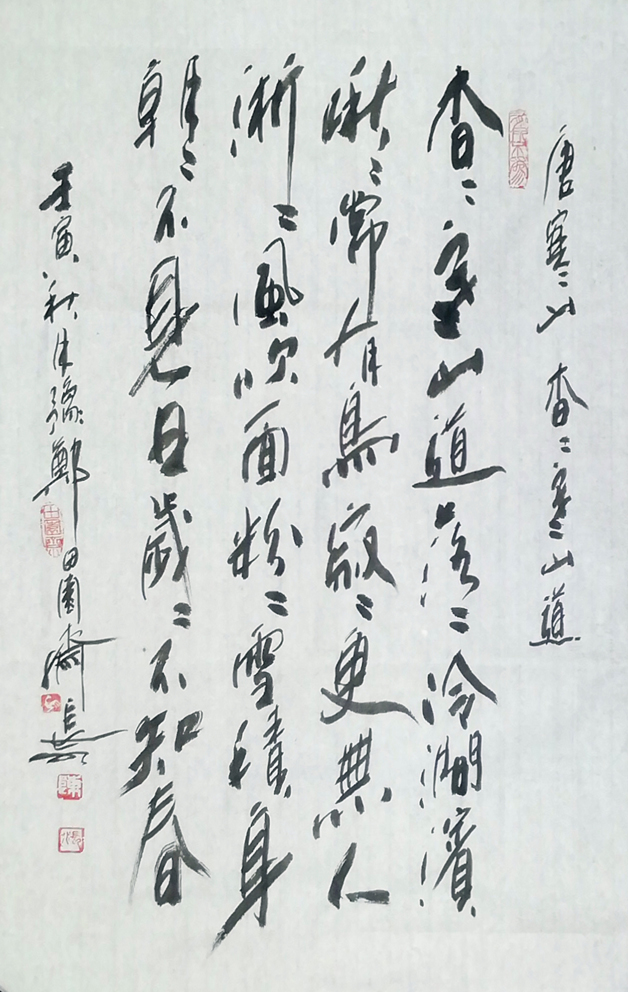 唐寒山 杳〻寒山道
杳〻寒山道落〻冷澗濱
啾〻常有鳥寂〻更無人
淅〻風吹面紛〻雪積身
朝〻不見日歲〻不知春
壬寅秋月豫鄭田園齋